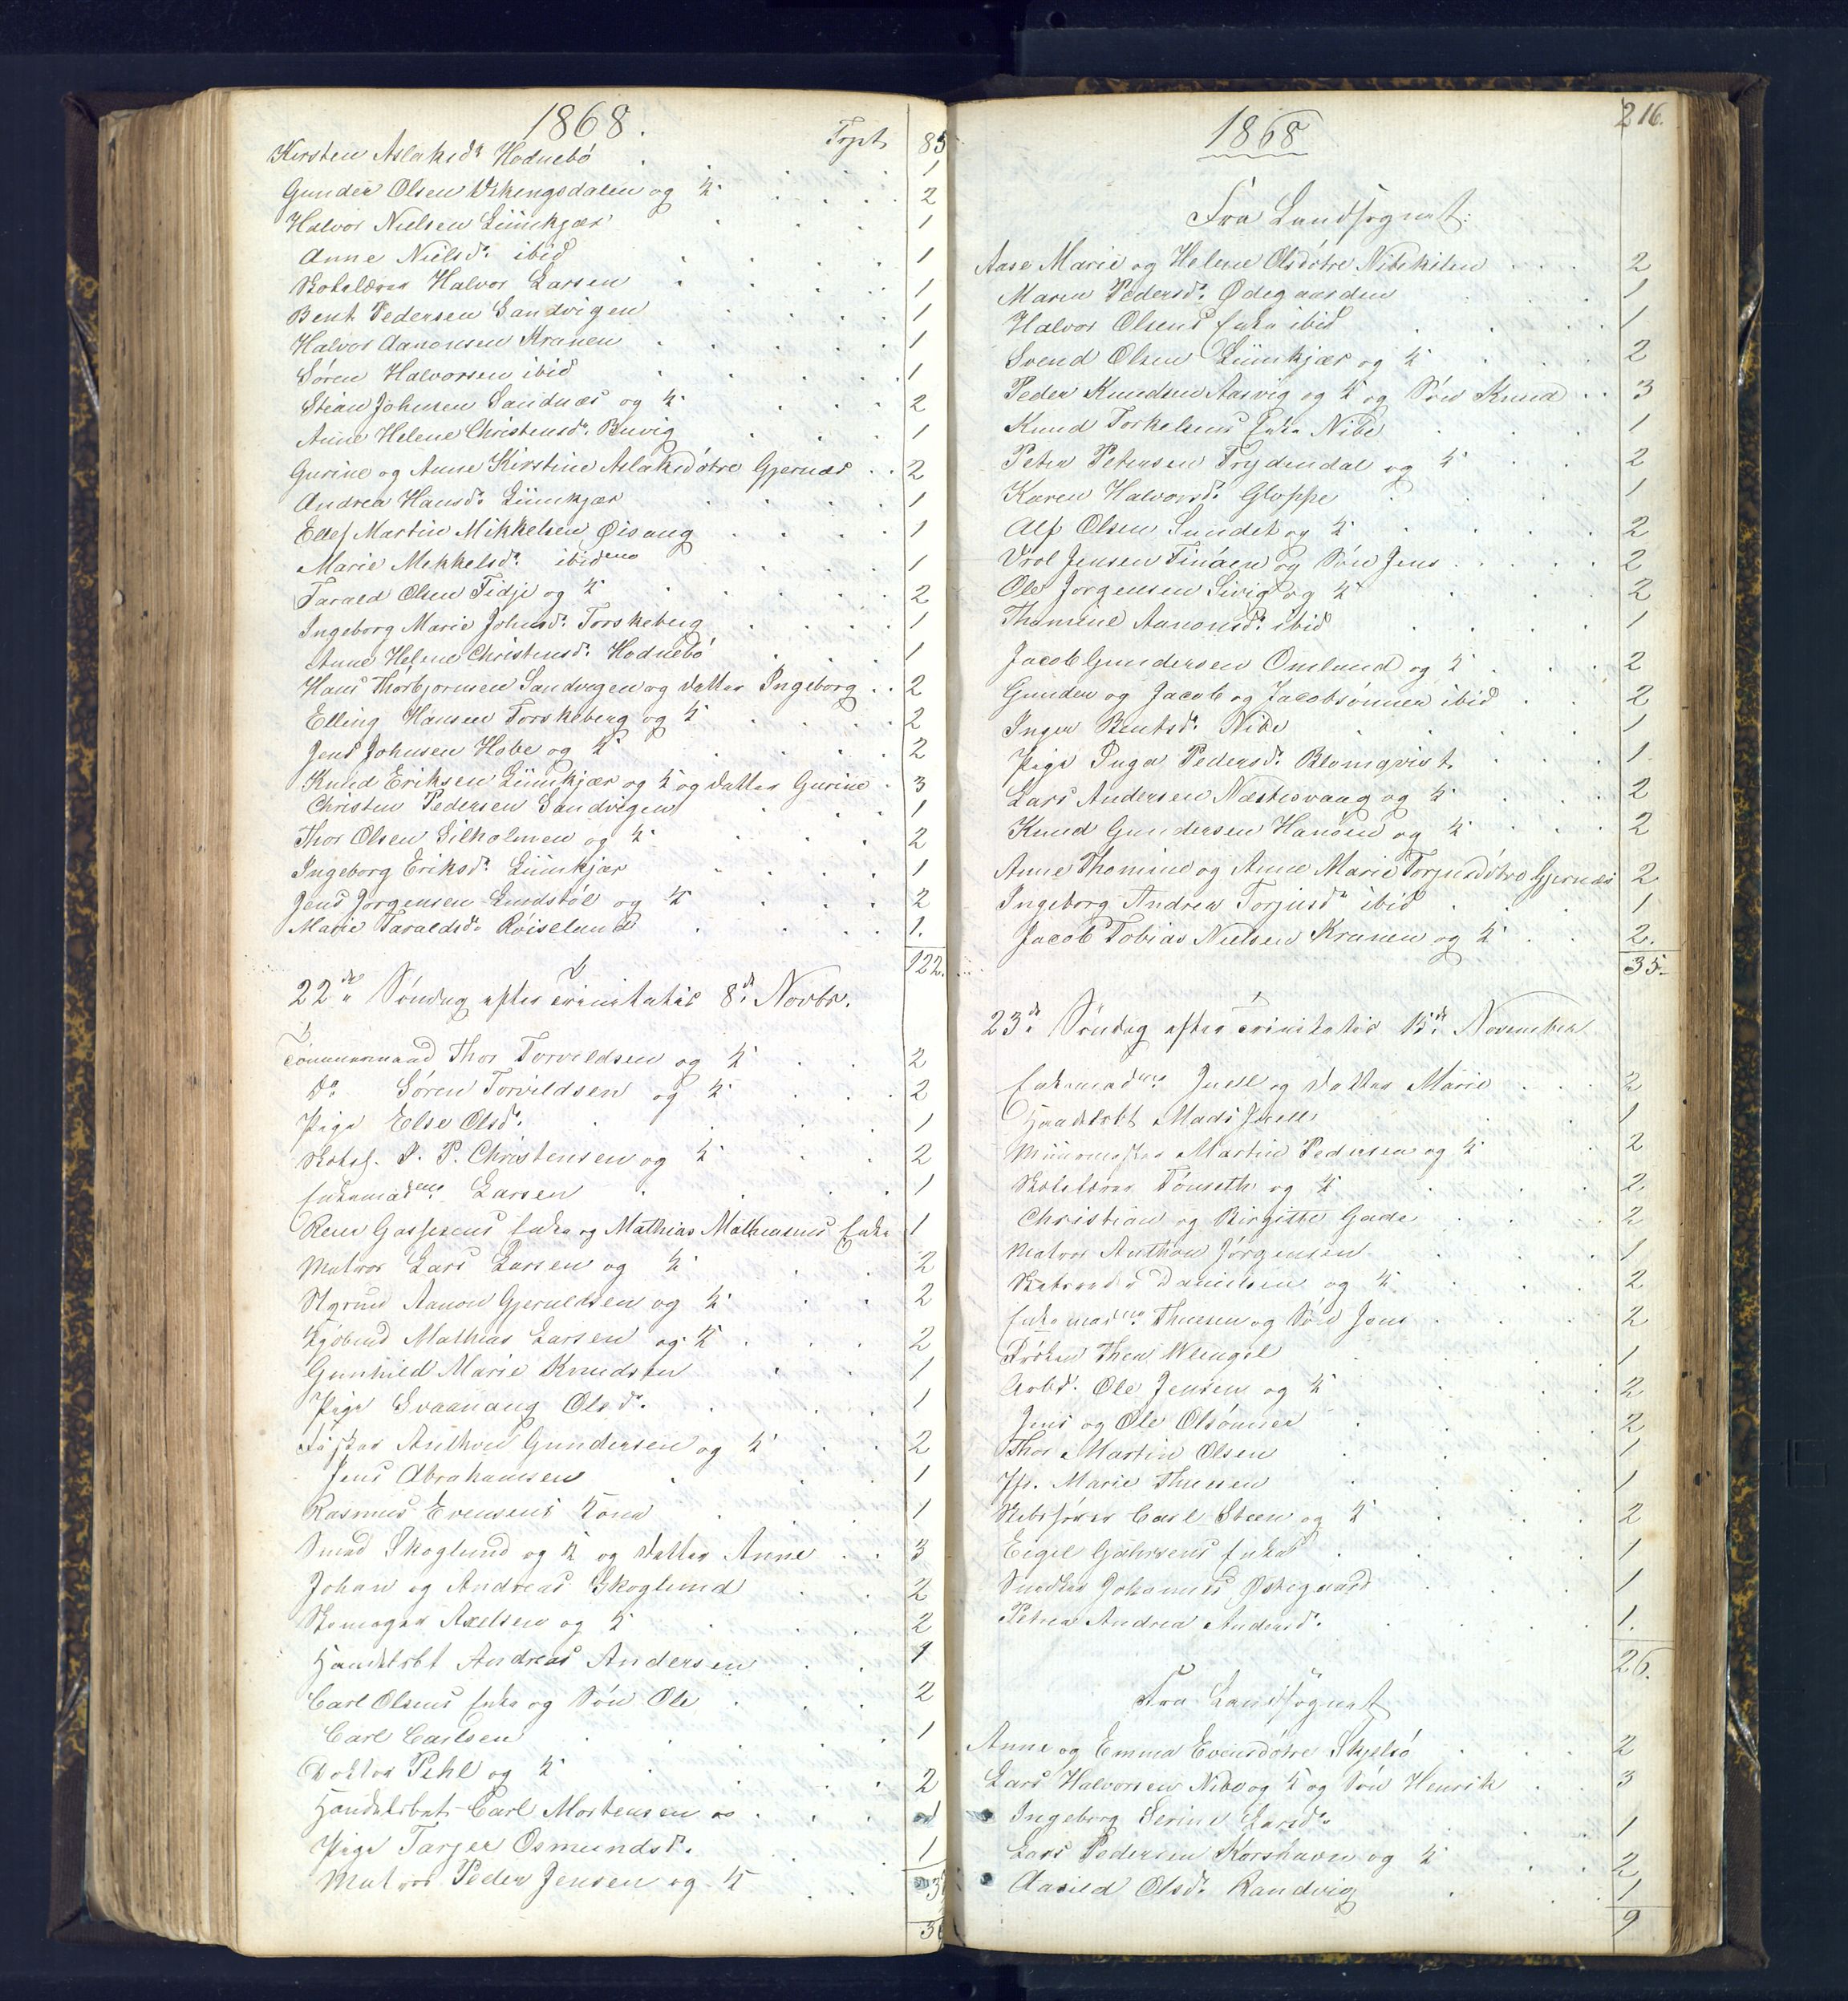 1868.
Tpt. 85
Kirsten Aslaksdr Hodnebö . 1
Gunder Olsen Vikengsdalen og K. 2
Halvor Nielsen Liimkjær 1
Anne Nielsdr. ibid 1
Skolelærer Halvor Larsen 1
Bent Pedersen Sandvigen 1
Halvor Aanonsen Kranen 1
Søren Halvorsen ibid 1
Stian Johnsen Sandnæs og K. 2
Anne Helene Christensdr. Buvig 1
Gurine og Anne Kirstine Aslaksdötre Gjernæs 2
Andrea Hansdr. Liimkjær 1
Ellef Martin Mikkelsen Øisang 1
Marie Mekkelsdr. ibidem 1
Tarald Olsen Tidje og K. 2
Ingeborg Marie Johnsdr. Torskeberg 1
Anne Helene Christensdr. Hodnebö 1
Hans Thorbjornsen Sandvigen og Datter Ingeborg 2
Elling Hansen Torskeberg og K. 2
Jens Johnsen Hobe og K. 2
Knud Eriksen Liimkjær og K. og Datter Gurine 3
Christen Pedersen Sandvigen 1
Thor Olsen Silholmen og K. 2
Ingeborg Eriksdr. Liimkjær 1
Jens Jorgensen Lundstöl og K. 2
Marie Taraldsdr. Röiseland 1.
122.
22de Söndag efter Trinitatis 8de Novbr.
Tömmermand Thor Torvildsen og K. 2
Do Søren Torvildsen og K. 2
Pige Else Olsdr. 1
Skibsf. P. P. Christensen og K. 2
Enkemadme. Larsen 1
Enke og Mathias Mathiasens Enke 1
Matros Lars Larsen og K. 2
Styrmd Aanon Gjeruldsen og K. 2
Kjöbmd Mathias Larsen og K. 2
Gunhild Marie Knudsen 1
Pige Svaanaug Olsdr. 1
Fisker Anthon Gundersen og K. 2
Jens Abrahamsen 1
Rasmus Evensens Kone 1
Smed Skoglund og K. og Datter Anne 3
Johan og Andreas Skoglund 2
Skomager Axelsen og K. 2
Handelsbt Andreas Andersen 1
Carl Olsens Enke og Sön Ole 2
Carl Carlsen 1
Doktor Pihl og K. 2
Handelsbet. Carl Mortensen
Pige Tarjer Osmundsdr. 1
Matros Peder Jensen og K.
1868
216.
Fra Landsognet.
Aase Marie og Helene Olsdötre Nibekilen 2
Maren Pedersdr. Ødegaarden 1
Halvor Olsens Enke ibid 1
Svend Olsen Liimkjær og K. 2
Peder Knudsen Aasvig og K. og Sön Knud 3
Knud Torkelsens Enke Nibe 1
Peter Petersen Frydendal og K. 2
Karen Halvorsdr. Gloppe 1
Alf Olsen Sundet og K. 2
Vrol Jensen Finöen og Sön Jens 2
Ole Jorgensen Sivig og K. 2
Thomine Aanonsdr. ibid 1
Jacob Gundersen Omlund og K. 2
Gunder og Jacob og Jacobsönner ibid 2
Inger Bentsdr. Nibe 1
Pige Inga Pedersdr. Blomqvist 1.
Lars Andersen Næstesvaag og K. 2
Knud Gundersen Hanöen og K. 2
Anne Thomine og Anne Marie Torjusdötre Gjernæs 2
Ingeborg Andrea Torjusdr ibid 1
Jacob Tobias Nielsen Kranen og K. 2.
35.
23de Söndag efter Trinitatis 15de November
Enkemadme. Juell og Datter Marie 2
Handelsbt Mads Juell 1
Muurmester Martin Pedersen og K. 2
Skolelærer Tönseth og K. 2.
Christian og Birgitte Gade 2
Matros Anthon Jörgensen 1
Danielsen og K. 2
Enkemadme. Thuesen og Sön Jens 2
Fröken Thea Wengel 1
Arbd. Ole Jensen og K. 2
Jens og Ole Olsönner 2
Thor Martin Olsen 1
Jfr. Marie Thuesen 1
Skibsförer Carl Steen og K. 2
Eigil Enke 1
Snedker Johannes Østegaard 1
Petrea Andrea Andersdr. 1.
26.
Fra Landsognet
Anne og Emma Evensdötre Skjelsö 2
Lars Halvorsen Nibe og K. og Sön Henrik 3
Ingeborg Serine Larsdr. 1
Lars Pedersen Korshavn og K. 2
Aasild Olsdr. Randvig 1
9